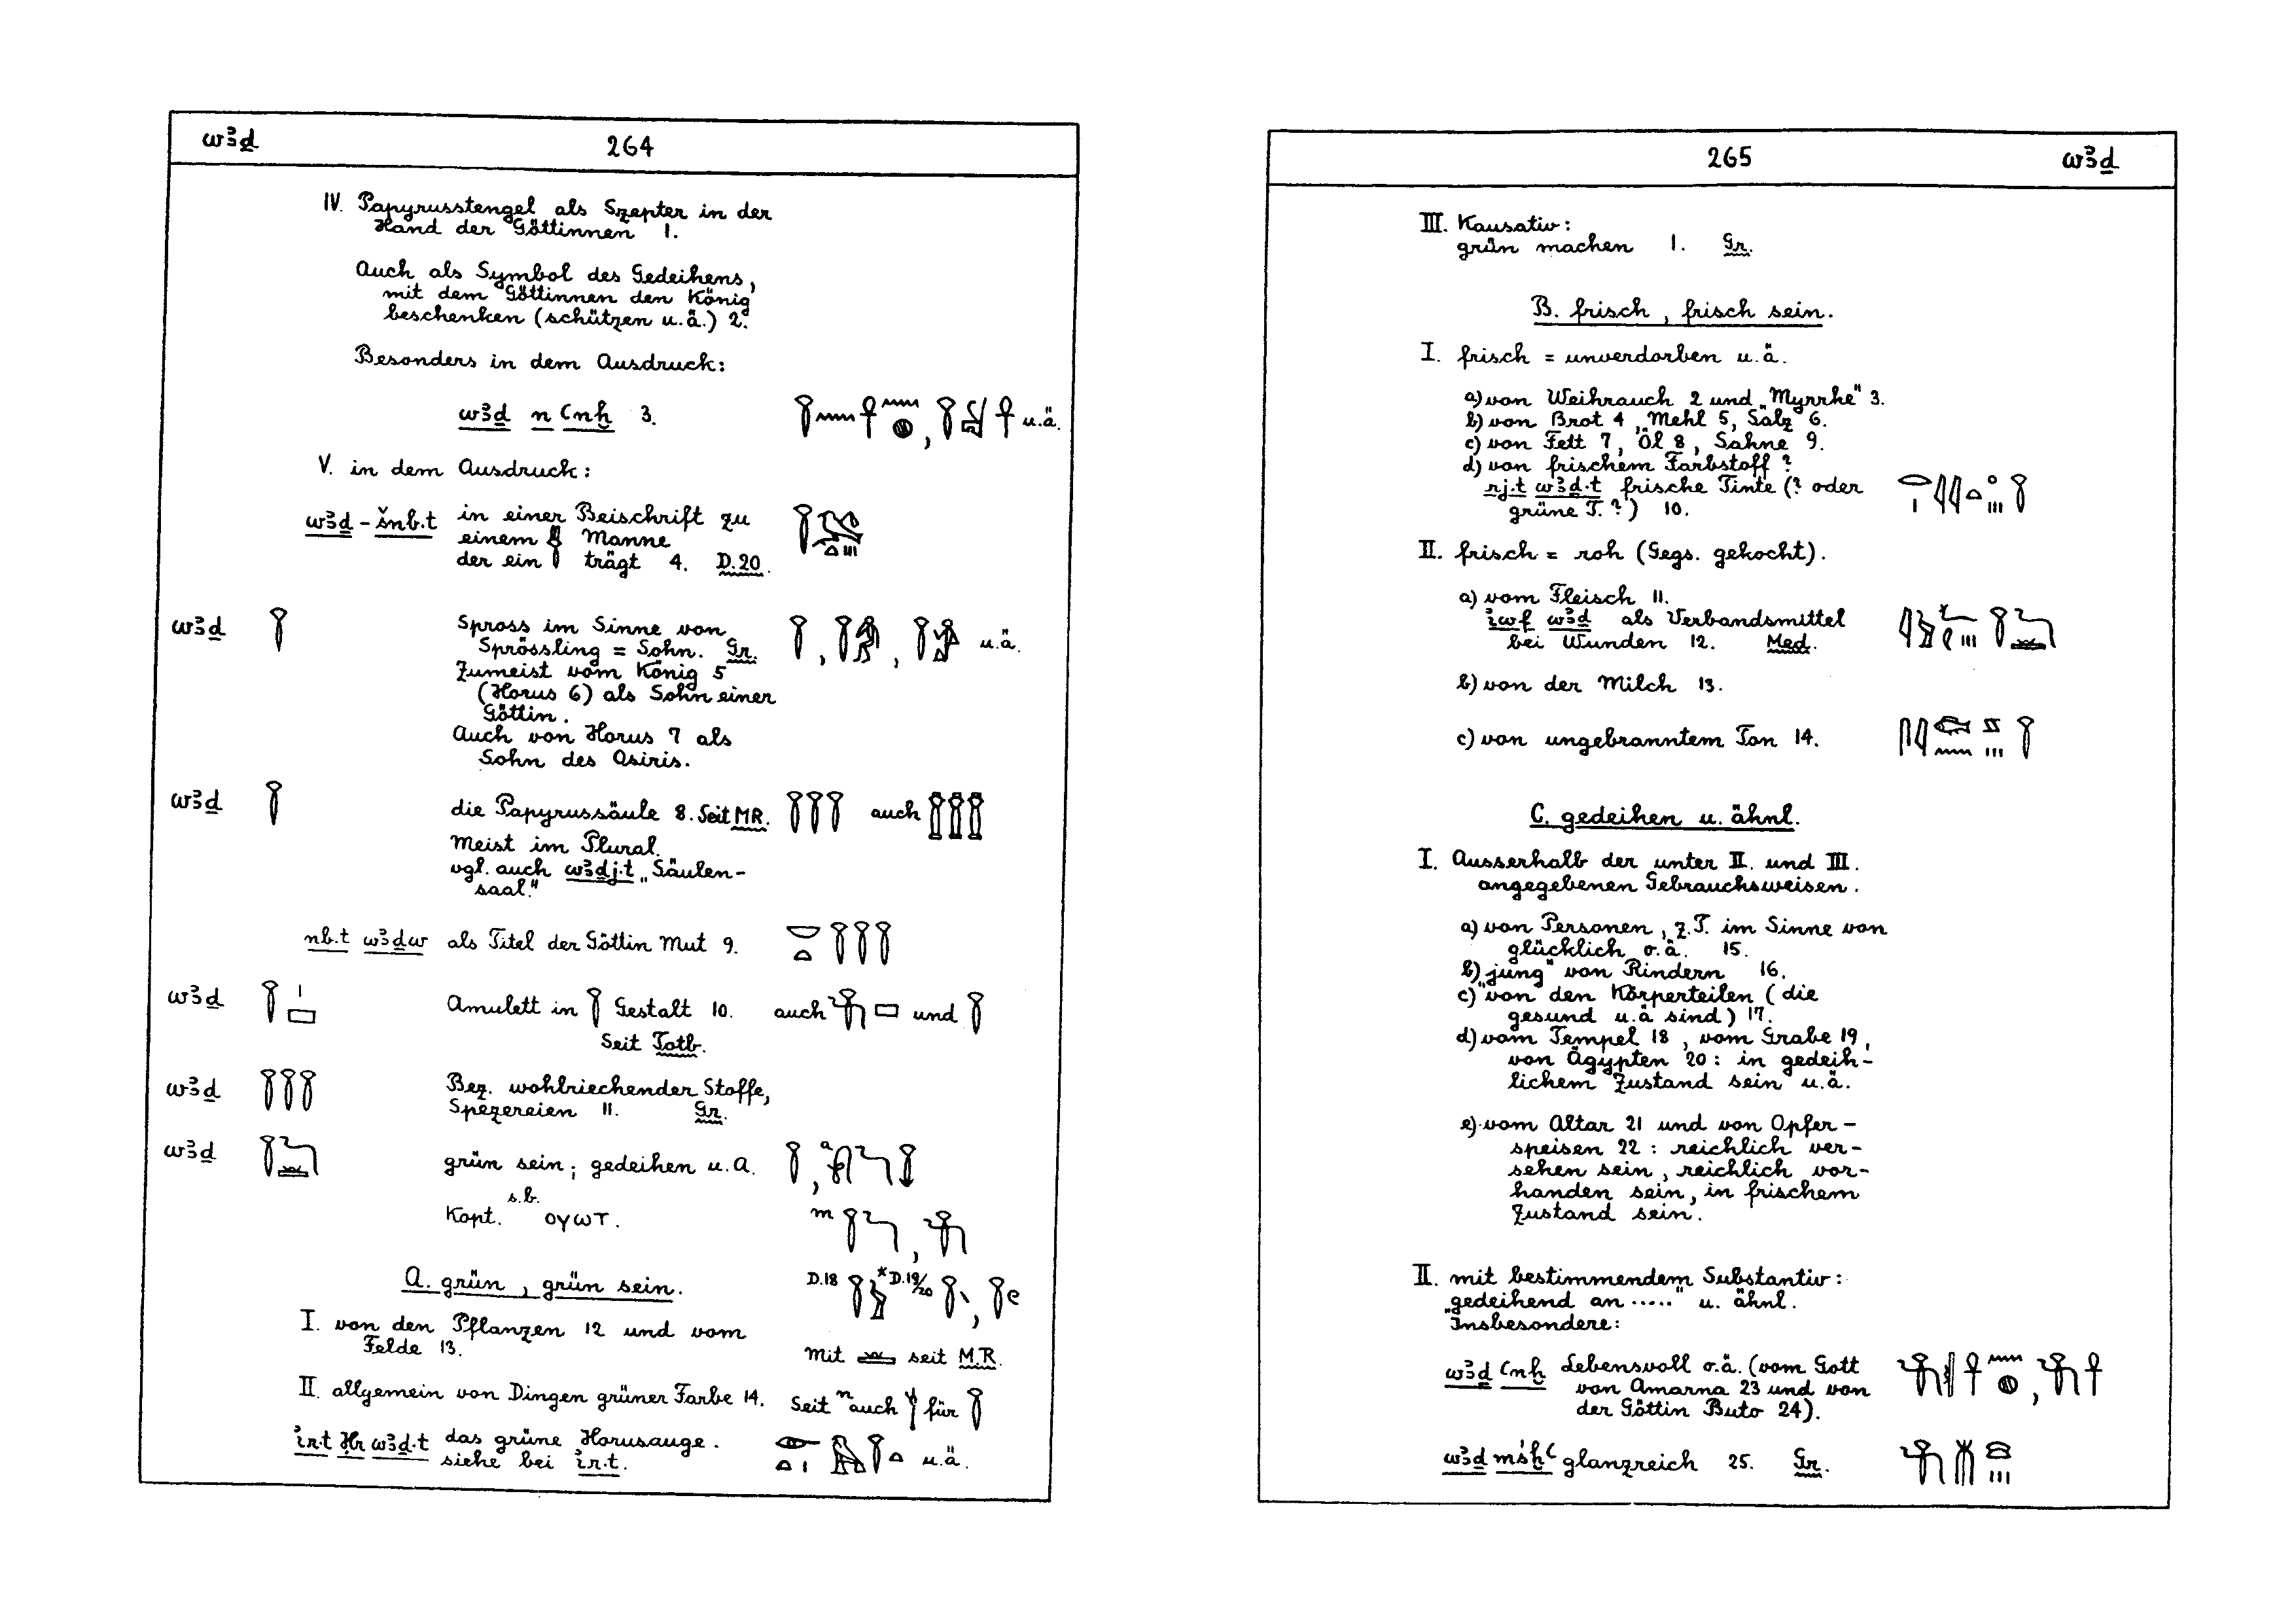 wꜣḏ 264
IV. Papyrusstengel als Szepter in der
Hand der Göttinnen 1.
Auch als Symbol des Gedeihens,
mit dem Göttinnen den König
beschenken (schützen u.ä.) 2.
Besonders in dem Ausdruck:
wꜣḏ n ꜥnḫ 3. u.ä.
V. in dem Ausdruck:
wꜣḏ-šnb.t in einer Beischrift zu
einem Manne
der ein trägt 4. D.20.
wꜣḏ Spross im Sinne von
Sprössling = Sohn. Gr. u.ä.
Zumeist vom König 5
(Horus 6) als Sohn einer
Göttin.
Auch von Horus 7 als
Sohn des Osiris.
wꜣḏ die Papyrussäule 8. Seit MR. auch
Meist im Plural.
vgl. auch wꜣḏj.t „Säulen-
saal."
nb.t wꜣḏw als Titel der Göttin Mut 9.
wꜣḏ Amulett in Gestalt 10. auch und
Seit Totb.
wꜣḏ Bez. wohlriechender Stoffe,
Spezereien 11. Gr.
wꜣḏ grün sein; gedeihen u.A. a
Kopt. s.b. ⲟⲩⲱⲧ. m
A. grün, grün sein. D.18 *D.19/20
I. von den Pflanzen 12 und vom
Felde 13. Mit seit M.R.
II. allgemein von Dingen grüner Farbe 14. Seit n auch für
ir.t Ḥr wꜣḏ.t das grüne Horusauge.
siehe bei ir.t. u.ä.
265 wꜣḏ
III. Kausativ:
grün machen 1. Gr.
B. frisch, frisch sein.
I. frisch = unverdorben u.ä.
a) von Weihrauch 2 und „Myrrhe" 3.
b) von Brot 4, Mehl 5, Salz 6.
c) von Fett 7, Öl 8, Sahne 9.
d) von frischem Farbstoff?
rj.t wꜣḏ.t frische Tinte (? oder
grüne T.?) 10.
II. frisch = roh (Gegs. gekocht).
a) vom Fleisch 11.
iwf wꜣḏ als Verbandsmittel
bei Wunden 12. Med.
b) von der Milch 13.
c) von ungebranntem Ton 14.
C. gedeihen u. ähnl.
I. Ausserhalb der unter II. und III.
angegebenen Gebrauchsweisen.
a) von Personen, z.T. im Sinne von
glücklich o.ä. 15.
b) „jung" von Rindern 16.
c) von den Körperteilen (die
gesund u.ä sind) 17.
d) vom Tempel 18, vom Grabe 19,
von Ägypten 20: in gedeih-
lichem Zustand sein u.ä.
e) vom Altar 21 und von Opfer-
speisen 22: reichlich ver-
sehen sein, reichlich vor-
handen sein, in frischem
Zustand sein.
II. mit bestimmendem Substantiv:
„gedeihend an ....." u. ähnl.
Insbesondere:
wꜣḏ ꜥnḫ Lebensvoll o.ä. (vom Gott
von Amarna 23 und von
der Göttin Buto 24).
wꜣḏ msḫꜥ glanzreich 25. Gr.